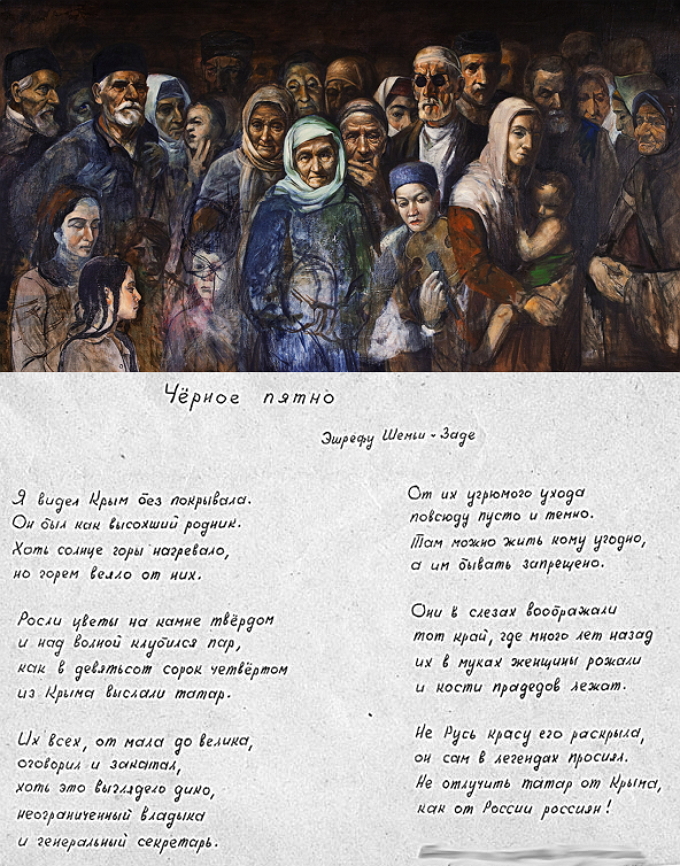 Чёрное пятно
Эшрефу Шемьи-Заде
Я видел Крым без покрывала.
Он был как высохший родник.
Хоть солнце горы нагревало,
но горем веяло от них.
Росли цветы на камне твёрдом
и над волной клубился пар,
как в девятьсот сорок четвёртом
из Крыма выслали татар.
Их всех, от мала до велика,
оговорил и закатал,
хоть это выглядело дико,
неограниченный владыка
и генеральный секретарь.
От их угрюмого ухода
повсюду пусто и темно.
Там можно жить кому угодно,
а им бывать запрещено.
Они в слезах воображали
тот край, где много лет назад
их в муках женщины рожали
и кости прадедов лежат.
Не Русь красу его раскрыла,
он сам в легендах просиял.
Не отлучить татар от Крыма,
как от России россиян!